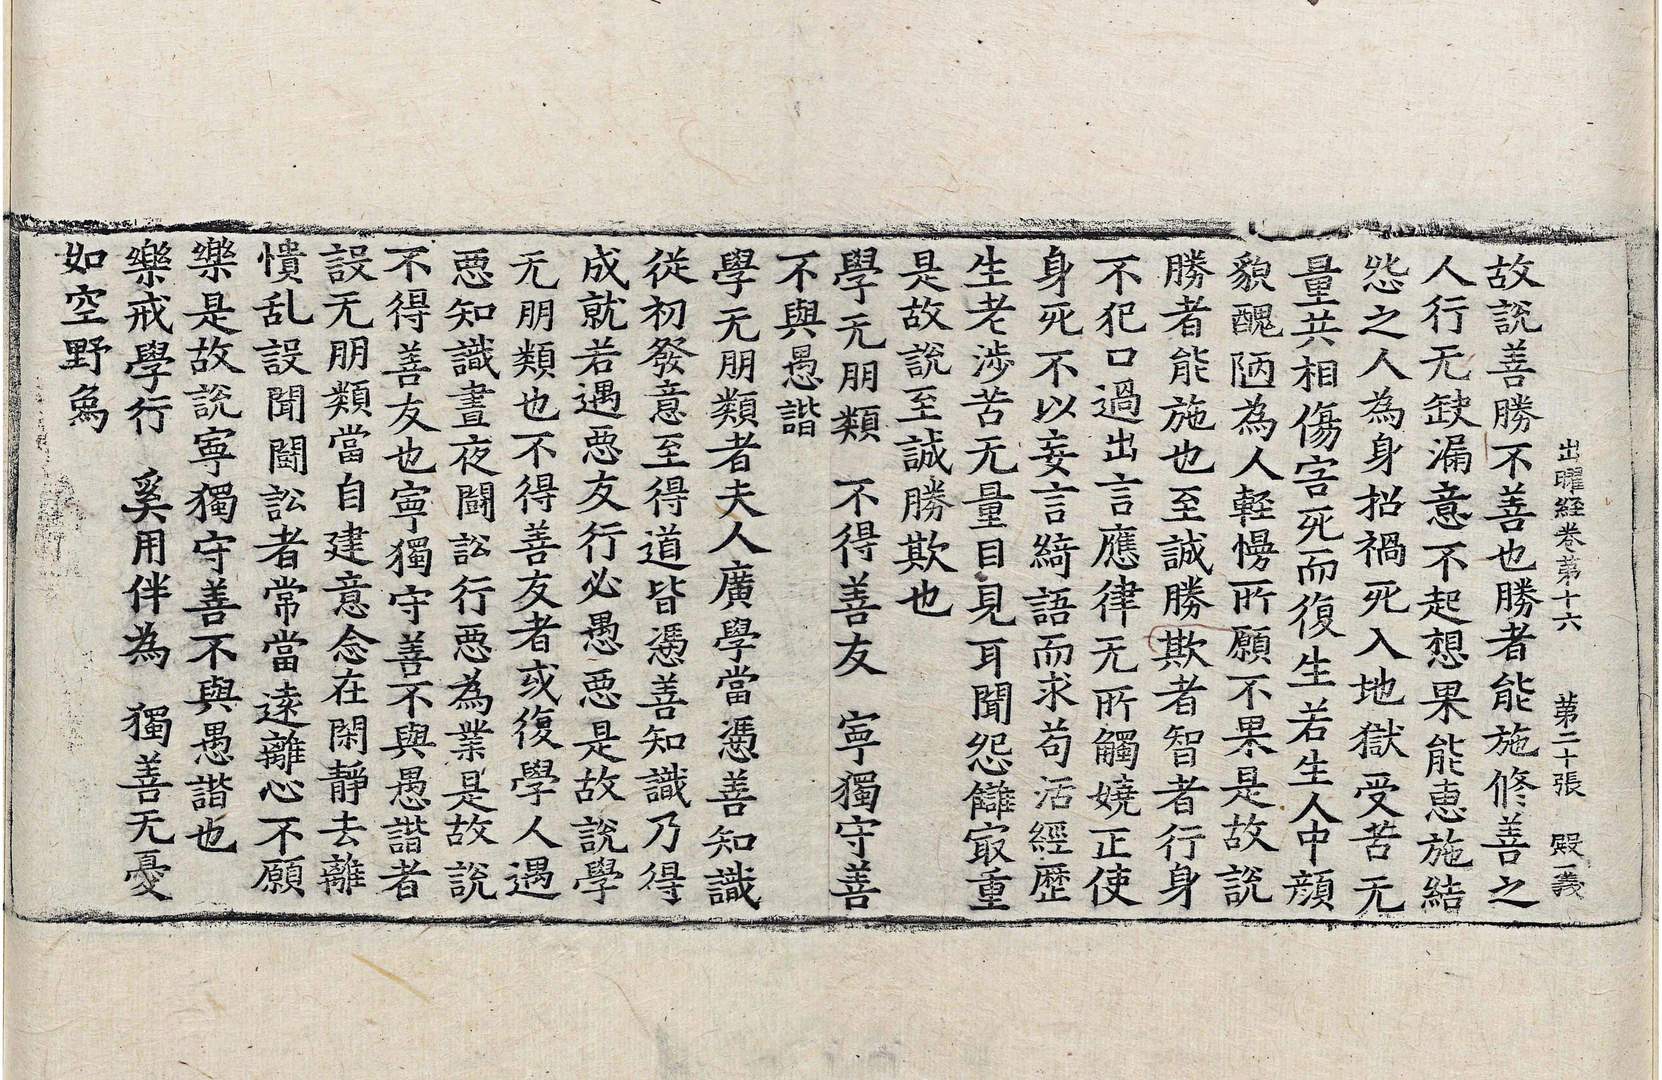 出曜経卷苐十六 苐二十張 殿 義
故說善勝不善也勝者能施修善之
人行无缺漏意不起想果能惠施結
怨之人為身招禍死入地獄受苦无
量共相傷害死而復生若生人中顔
貌醜陋為人輕慢所願不果是故說
勝者能施也至誠勝欺者智者行身
不犯口過出言應律无所觸嬈正使
身死不以妄言綺語而求苟活經歷
生老涉苦无量目見耳聞怨讎㝡重
是故說至誠勝欺也
學无朋類 不得善友 寧獨守善
不與愚諧
學无朋類者夫人廣學當憑善知識
從初發意至得道皆憑善知識乃得
成就若遇惡友行必愚惡是故說學
无朋類也不得善友者或復學人遇
惡知識晝夜鬪訟行惡為業是故說
不得善友也寧獨守善不與愚諧者
設无朋類當自建意念在閑靜去離
憒乱設聞鬪訟者常當遠離心不願
樂是故說寧獨守善不與愚諧也
樂戒學行 奚用伴為 獨善无憂
如空野鳥